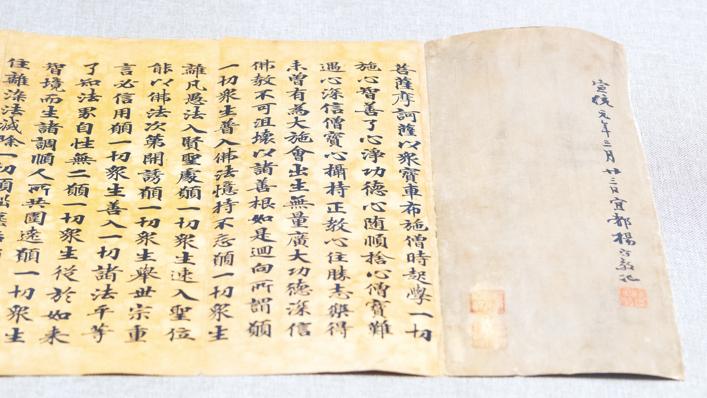 宣統元年三月廿三日宜都楊守敬記
菩薩摩訶薩以衆寶車布施僧時起學一切
施心智善了心淨功德心随順捨心僧寶難
遇心深信僧寶心攝持正教心住勝志樂得
未曾有為大施會出生無量廣大功德深信
佛教不可沮壞以諸善根如是迴向所謂願
一切衆生普入佛法憶持不忘願一切衆生
離凡愚法入賢聖處願一切衆生速入聖位
能以佛法次第開誘願一切衆生舉世宗重
言必信用願一切衆生善入一切諸法平等
了知法界自性無二願一切衆生從於如来
智境而生諸調順人所共圍遶願一切衆生
住離染法滅除一切煩